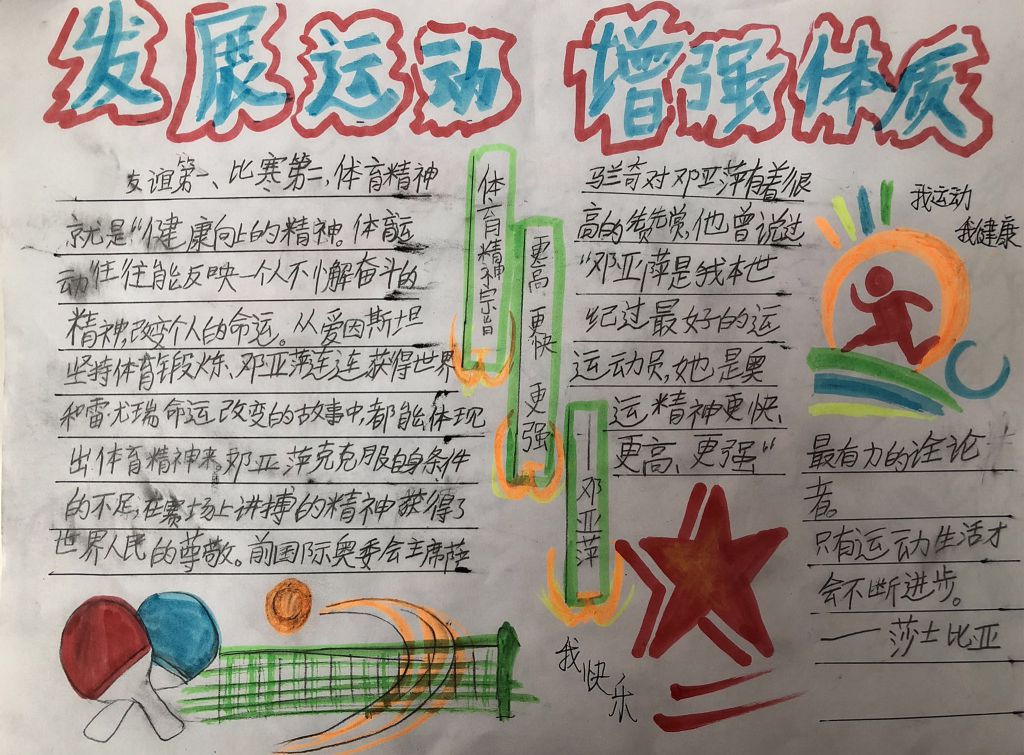 发展运动 增强体质
友谊第一、比赛第二,体育精神
就是“健康向上的精神。体育运
动”往往能反映一个人不懈奋斗的
精神,改变个人的命运。从爱因斯坦
坚持体育锻炼、邓亚萍连连获得世界
和雷尤瑞命运改变的故事中,都能体现
出体育精神来。邓亚萍克克服自身条件
的不足,在赛场上进搏的精神获得了
世界人民的尊敬。前国际奥委会主席萨
体育精神宗旨
更高 更快 更强
——邓亚萍
马兰奇对邓亚萍有着很
高的赞赏,他曾说过
“邓亚萍是我本世
纪过最好的运
运动员,她是奥
运精神更快、
更高、更强,“
我运动
我健康
最有力的诠论
者。
只有运动生活才
会不断进步。
——莎士比亚
我快乐